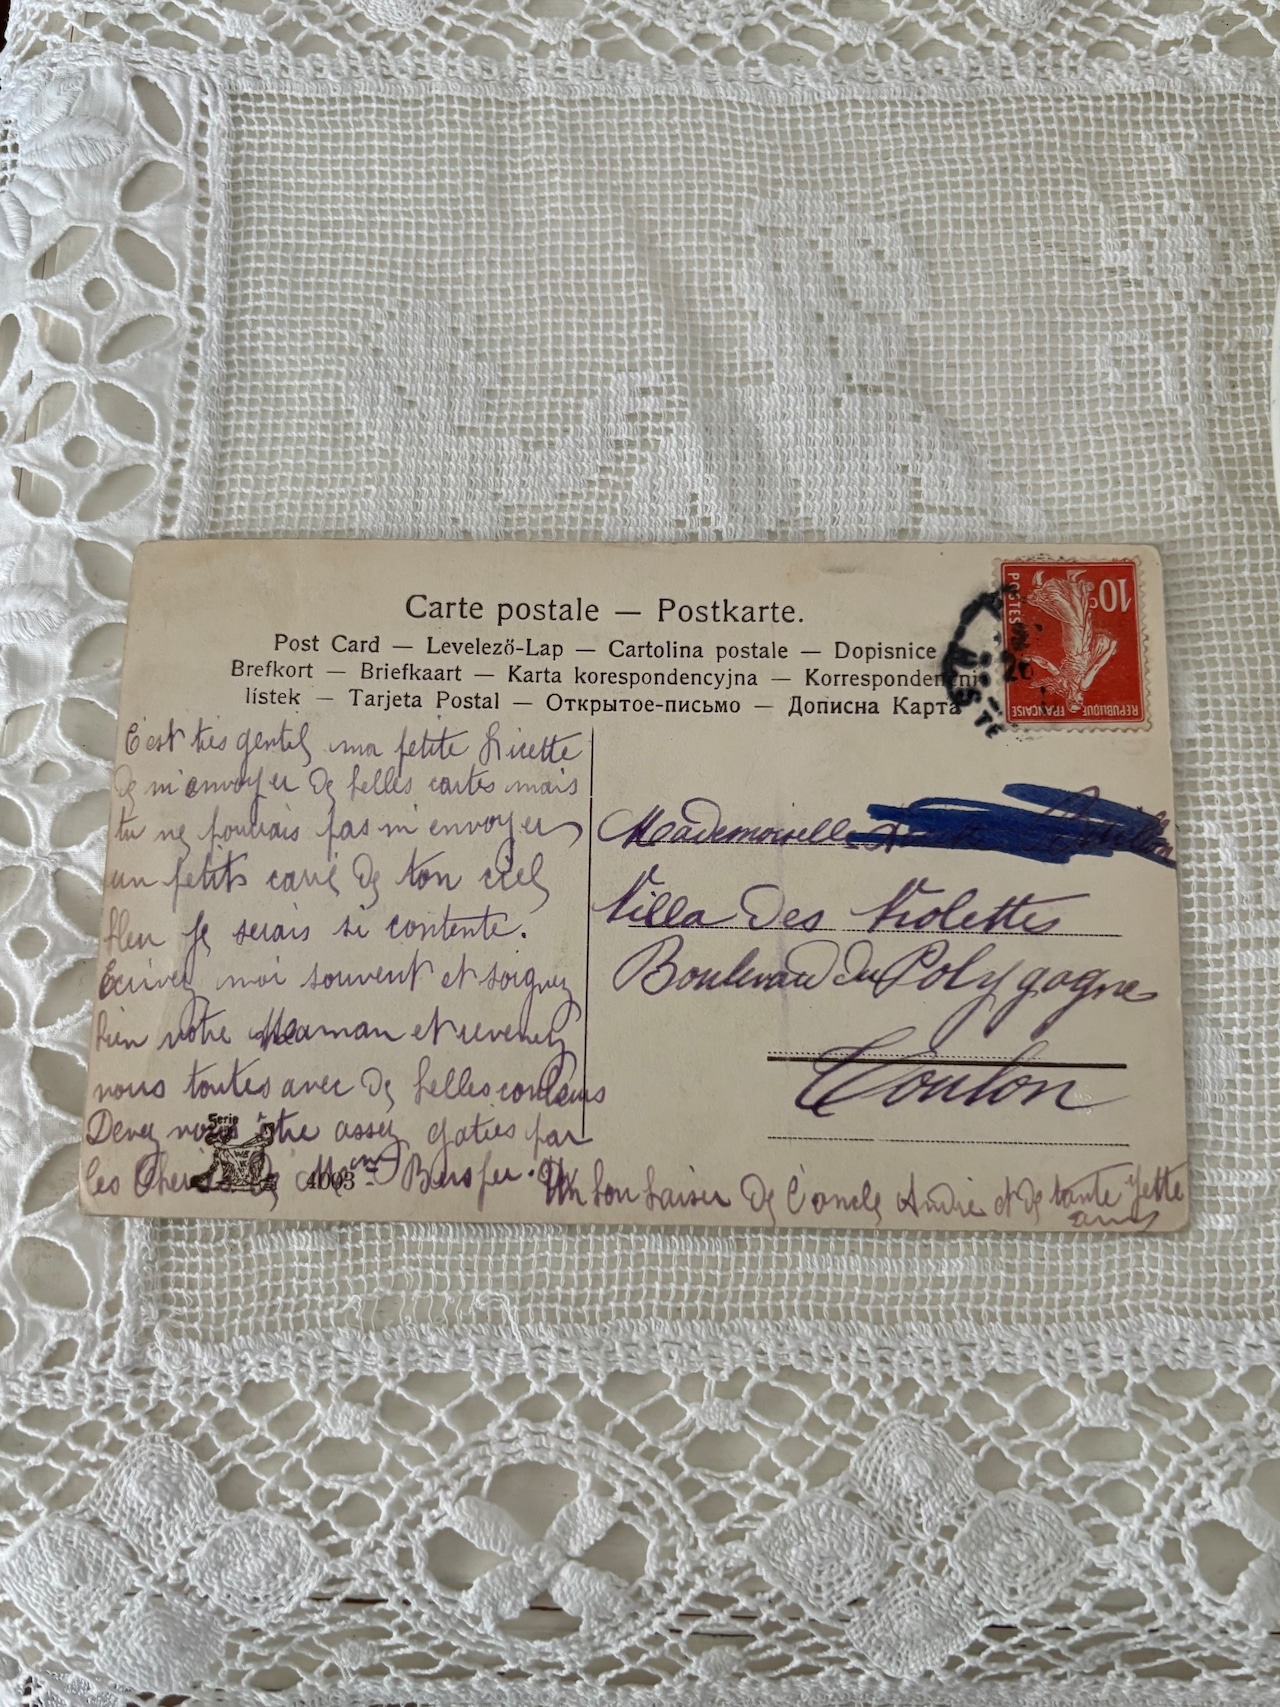 Carte postale — Postkarte.
Post Card — Levelező-Lap — Cartolina postale — Dopisnice
Brefkort — Briefkaart — Karta korespondencyjna — Korrespondenčni
lístek — Tarjeta Postal — Открытое-письмо — Дописна Карта
10c
POSTES
REPUBLIQUE FRANCAISE
26
C'est très gentil ma petite
de m'envoyer de belles cartes mais
tu ne pourrais pas m'envoyer
un petit carré de ton ciel
bleu je serais si contente.
Ecrivez moi souvent et soignez
bien votre Maman et revenez
nous toutes avec de belles couleurs
Devez vous être assez gatées par
les de Mme
Un bon baiser de l'oncle André et de tante Yette
Serie
4003
Mademoiselle
Villa des Violettes
Boulevard du Polygogne
Toulon